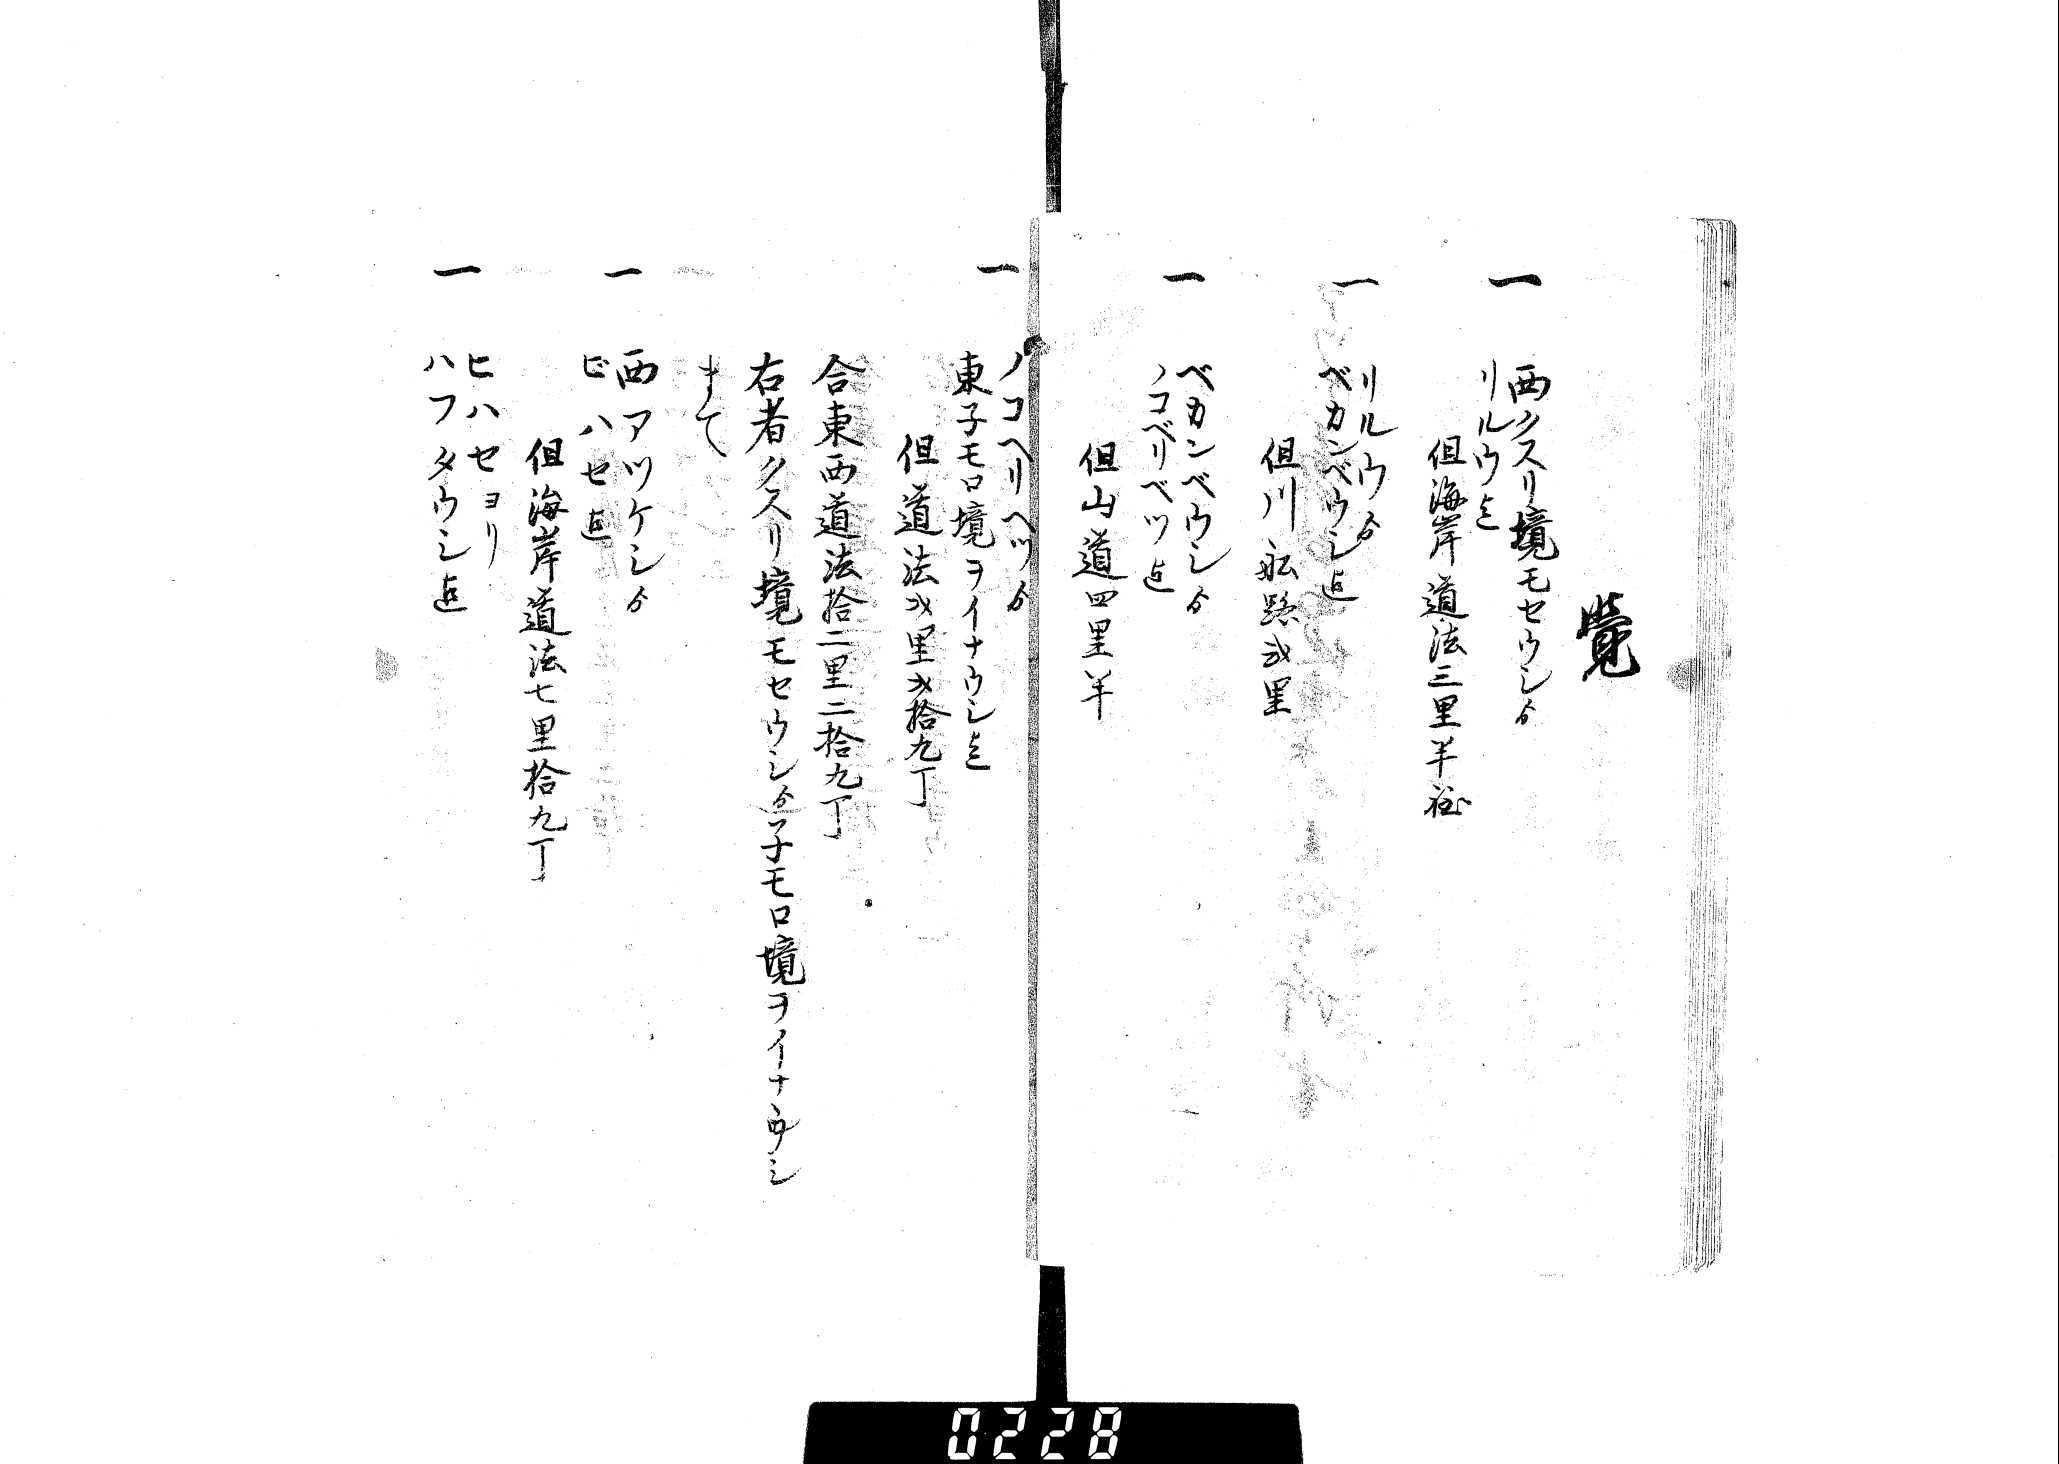 覚
一 西クスリ境モセウシゟ
リルウ迄
但海岸道法三里半程
一 リルウゟ
ベカンベウシ迄
但川船路弐里
一 ベカンベウシゟ
ノコベリベツ迄
但山道四里半
一 ノコヘリヘツゟ
東子モロ境ヲイナウシ迄
但道法弐里弐拾九丁
合東西道法拾二里二拾九丁
右者クスリ境モセウシゟ子モロ境ヲイナウシ
まて
一 西アツケシゟ
ビハセ迄
但海岸道法七里拾九丁
一 ヒハセヨリ
ハフタウシ迄
0228